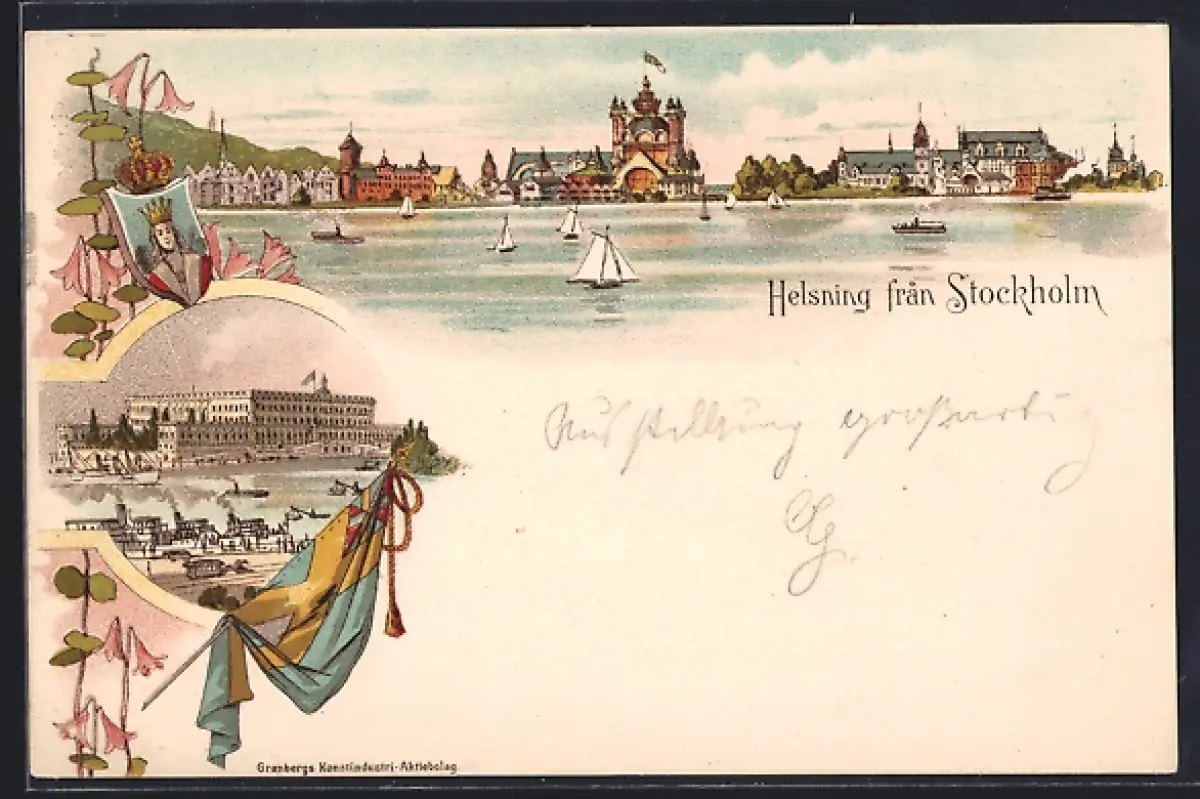 Helsning från Stockholm
Ausstellung großartig
Granbergs Konstindustri-Aktiebolag